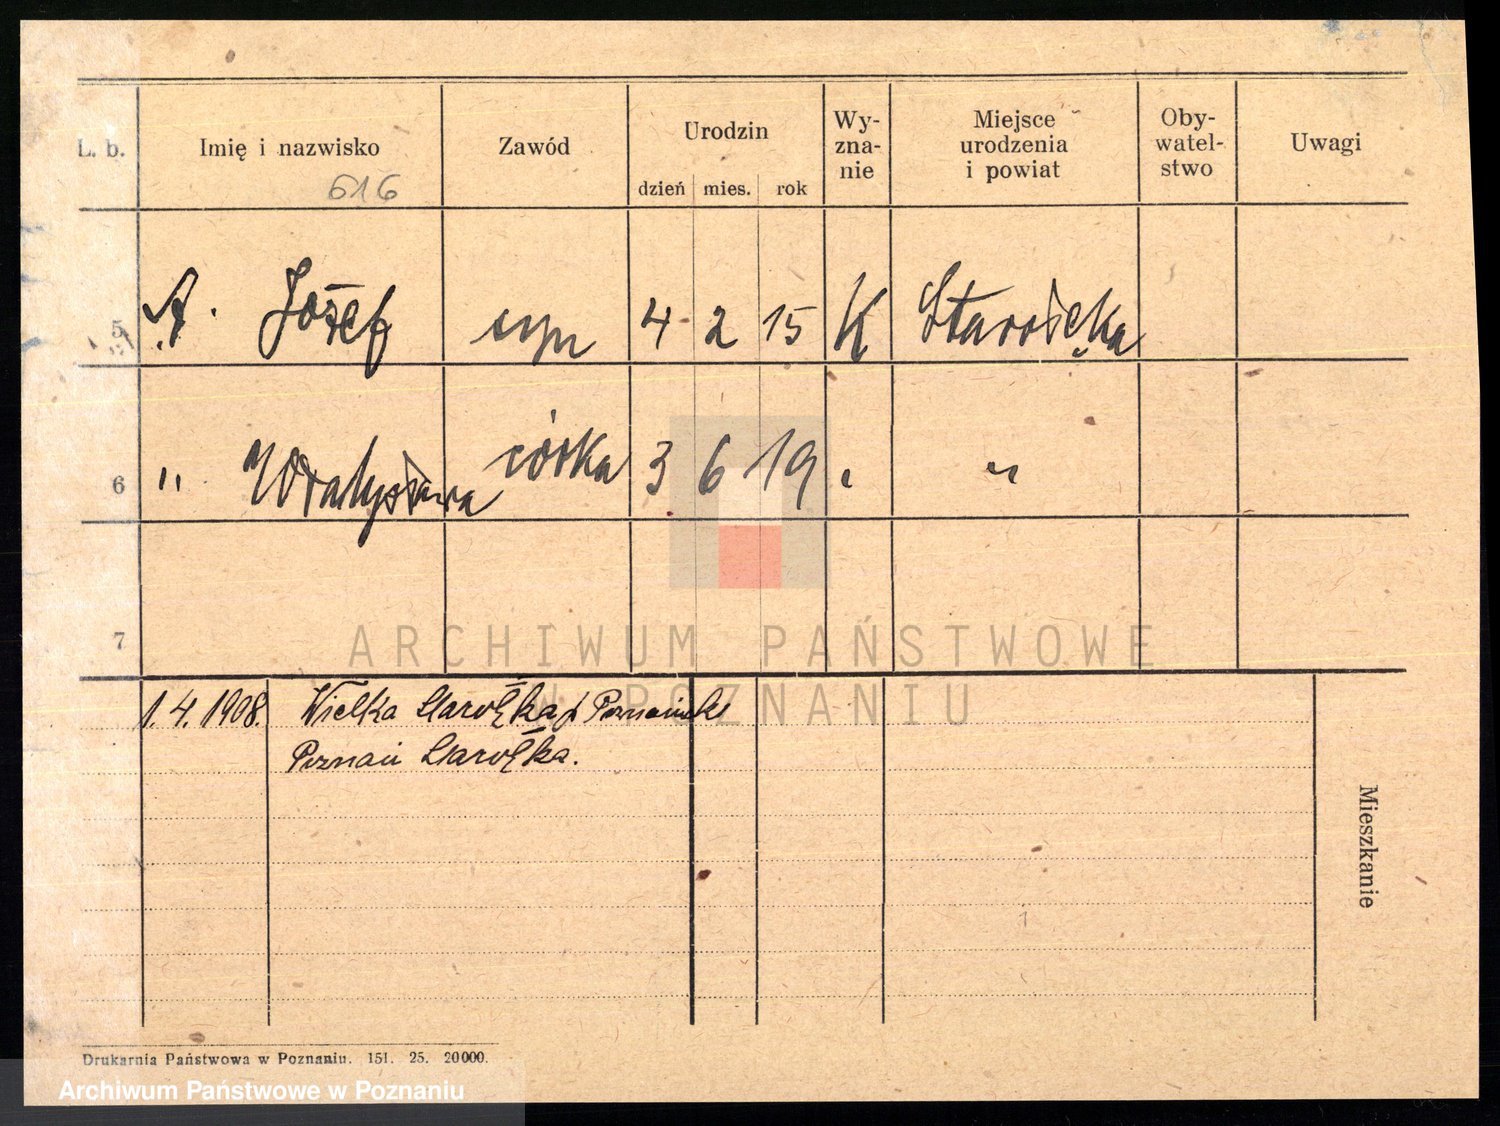 L. b. Imię i nazwisko Zawód Urodzin dzień mies. rok Wy-zna-nie Miejsce urodzenia i powiat Oby-watel-stwo Uwagi
616
5 A. Józef syn 4 2 15 K Starołęka
6 " Władysława córka 3 6 19 " "
7
1.4.1908. Wielka Starołęka p. Poznański
Poznań Starołęka.
Mieszkanie
Drukarnia Państwowa w Poznaniu. 151. 25. 20000.
ARCHIWUM PAŃSTWOWE
W POZNANIU
Archiwum Państwowe w Poznaniu